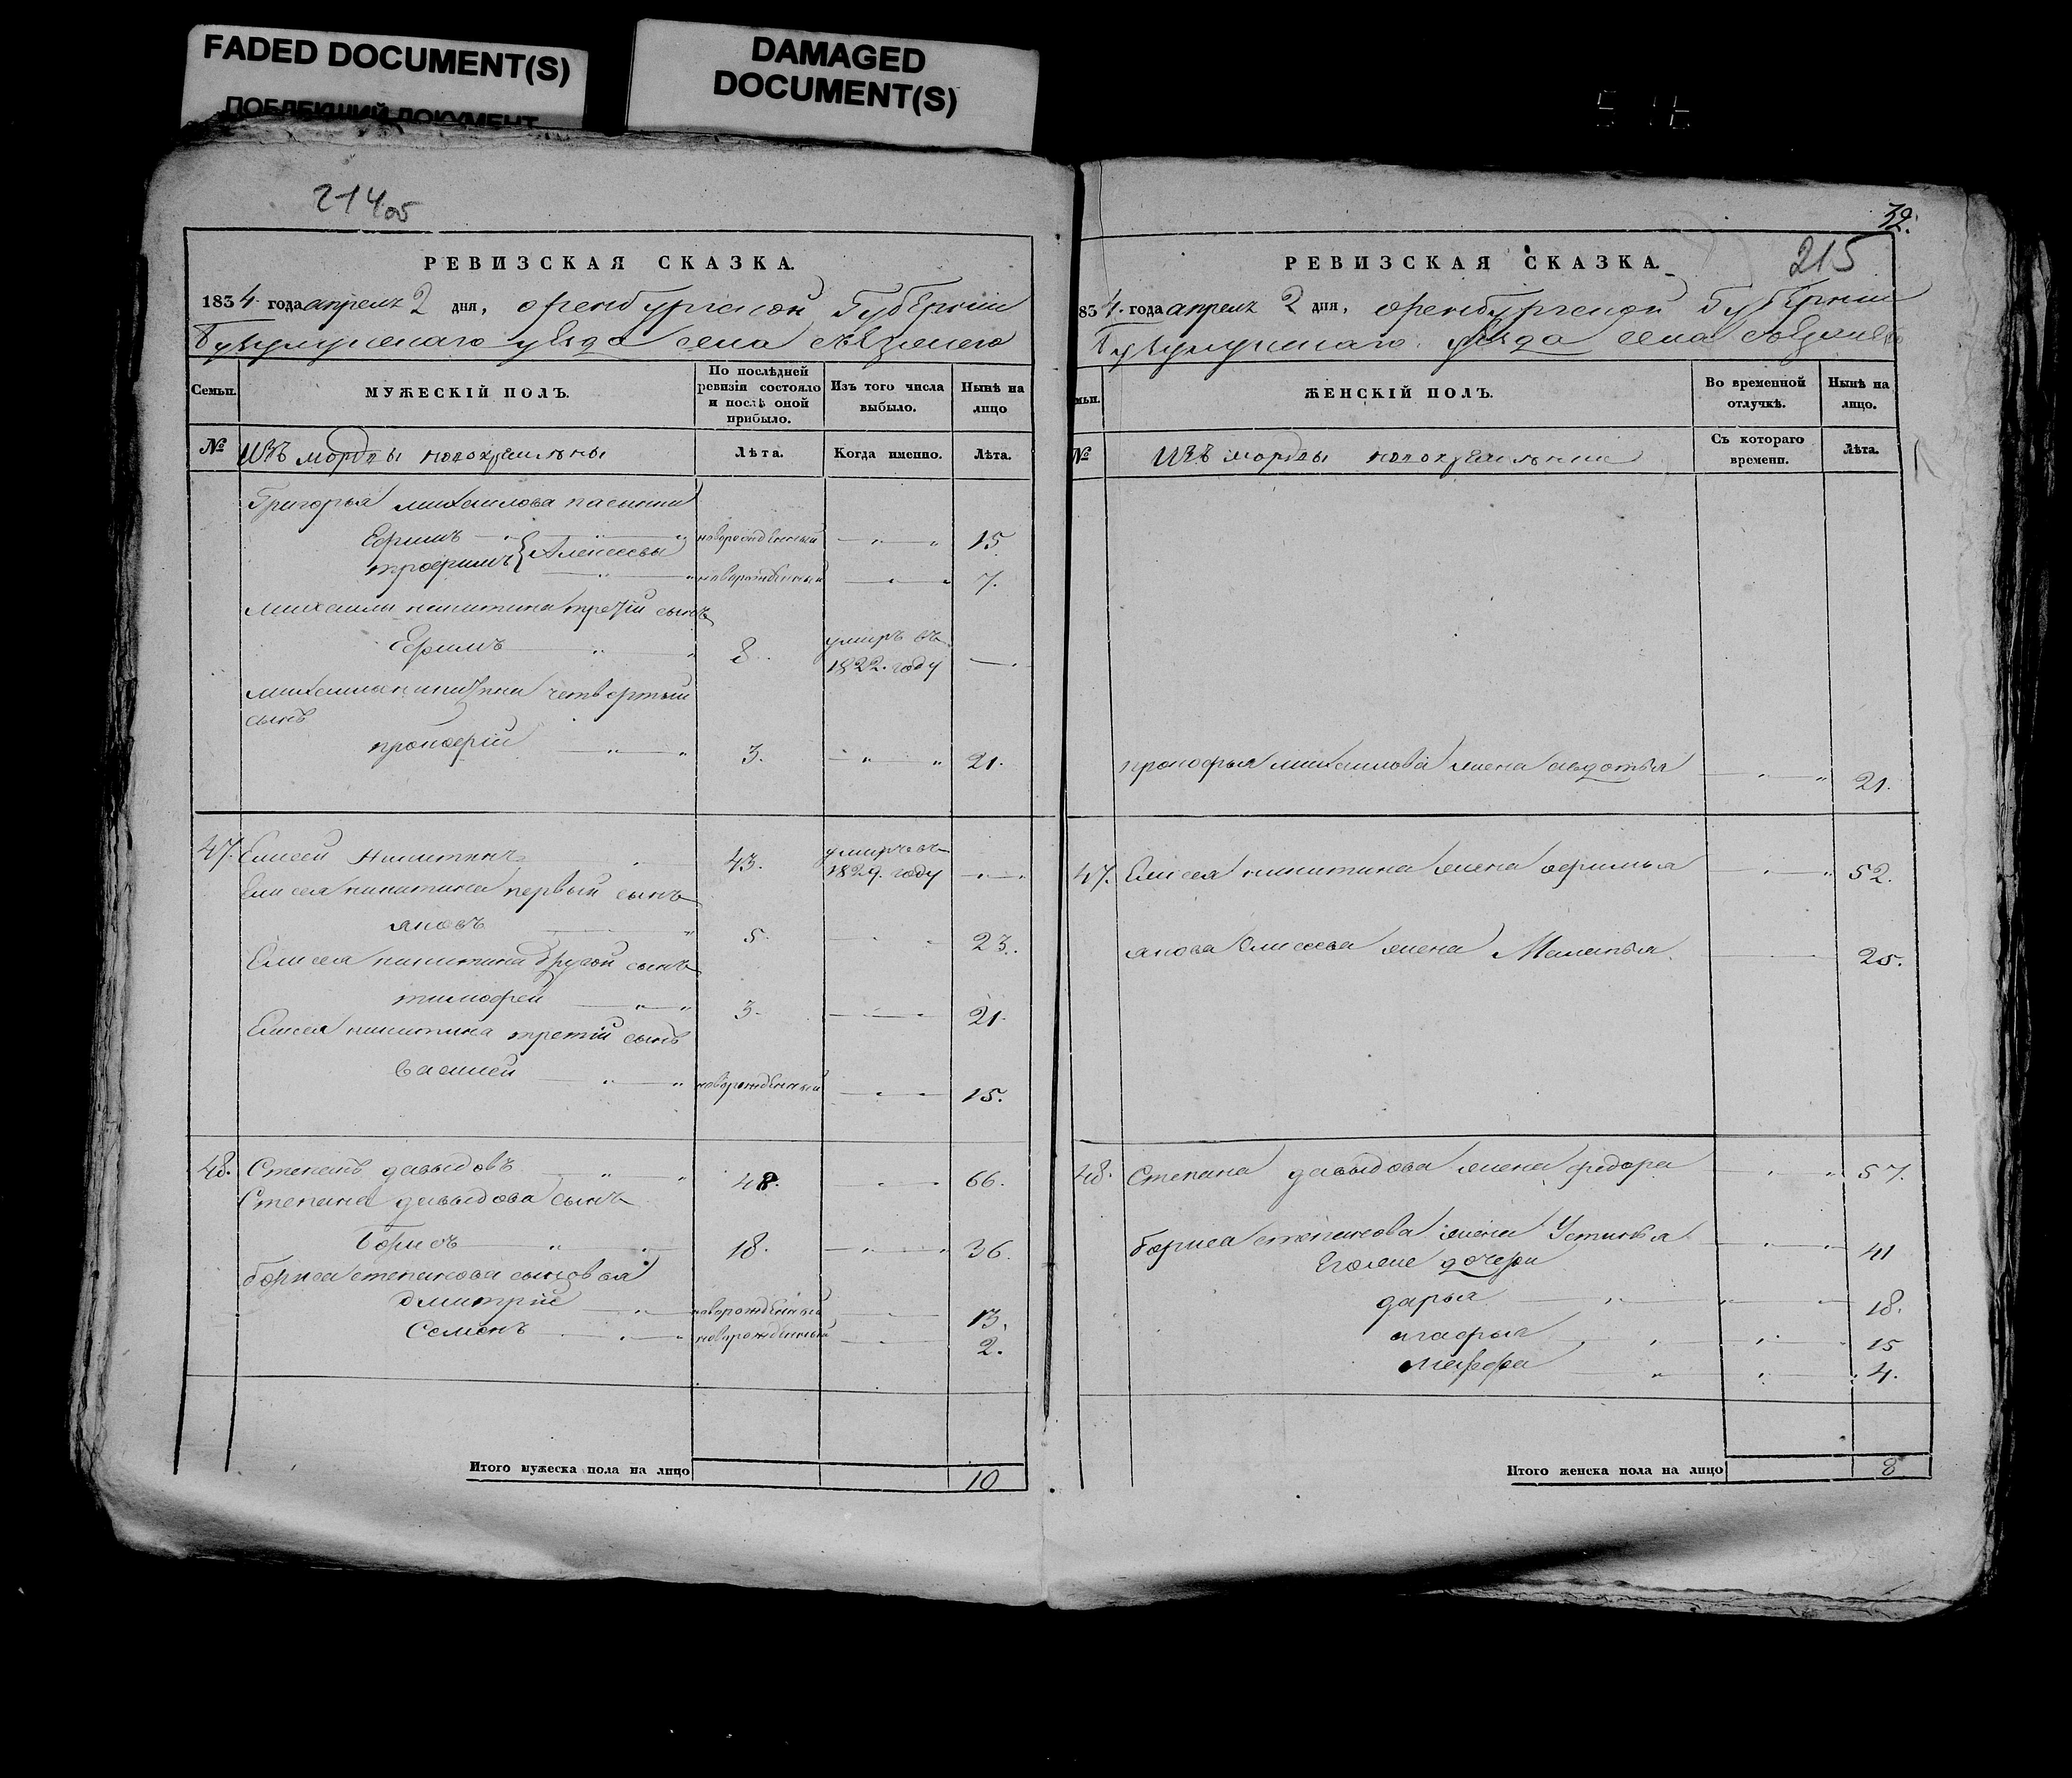 FADED DOCUMENT(S)
ПОБЛЕКШИЙ ДОКУМЕНТ
DAMAGED
DOCUMENT(S)
214об
РЕВИЗСКАЯ СКАЗКА.
1834 года апреля 2 дня, оренбургской Губернии
Бугульминскаго уезда села
Семьи.
МУЖЕСКІЙ ПОЛЪ.
По послѣдней ревизіи состояло и послѣ оной прибыло.
Изъ того числа выбыло.
Нынѣ на лицо
№ Изъ мордвы
Лѣта.
Когда именно.
Лѣта.
Григорья михаилова пасынки
Ефимъ новорожденный 15
трофимъ Алексеевы новорожденный 7.
михаилы никитина третій сынъ
Ефимъ 8. умиръ въ 1822. году
михаилы никитина четвертый
сынъ
прокофій 3. 21.
47. Елисей Никитинъ 43. умиръ въ 1829. году
Елисея никитина первый сынъ
яковъ 5. 23.
Елисея никитина другой сынъ
тимофей 3. 21.
Елисея никитина третій сынъ
василей новорожденный 15.
48. Степанъ давыдовъ 48. 66.
Степана давыдова сынъ
Борисъ 18. 36.
бориса степанова сыновья
дмитрій новорожденный 13.
Семенъ новорожденный 2.
Итого мужеска пола на лицо 10
32.
215
РЕВИЗСКАЯ СКАЗКА.
834. года апреля 2 дня, оренбургской Губернии
Бугульминскаго уезда села
мьи.
ЖЕНСКІЙ ПОЛЪ.
Во временной отлучкѣ.
Нынѣ на лицо.
№ Изъ мордвы
Съ котораго времени.
Лѣта.
прокофья михаилова жена авдотья 21.
47. Елисея никитина жена офимья 52.
якова Елисеева жена Маланья 25.
48. Степана давыдова жена федора 57.
бориса степанова жена Устинья 41
Его же дочери
дарья 18.
агафья 15
марфа 4.
Итого женска пола на лицо 8